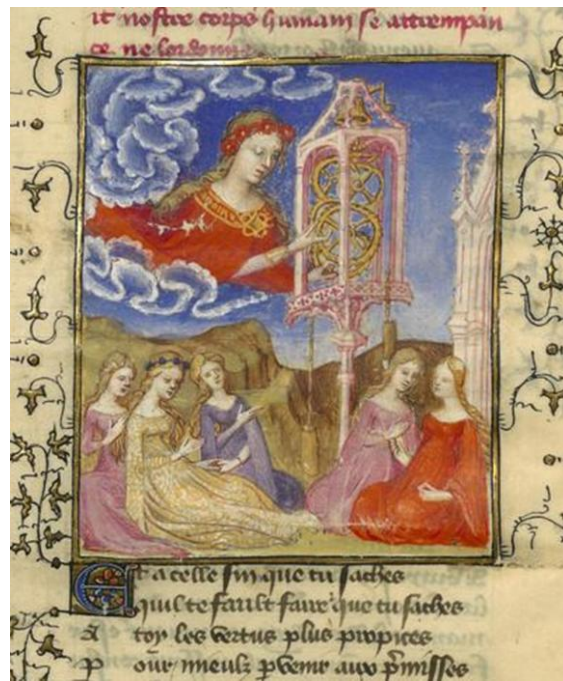 it nostre corps humain se attrempan
ce ne lordonne
Et a celle fin que tu saches
quil te fault faire que tu saches
A toy les vertus plus propices
Pour mieulz pvenir aux pmisses